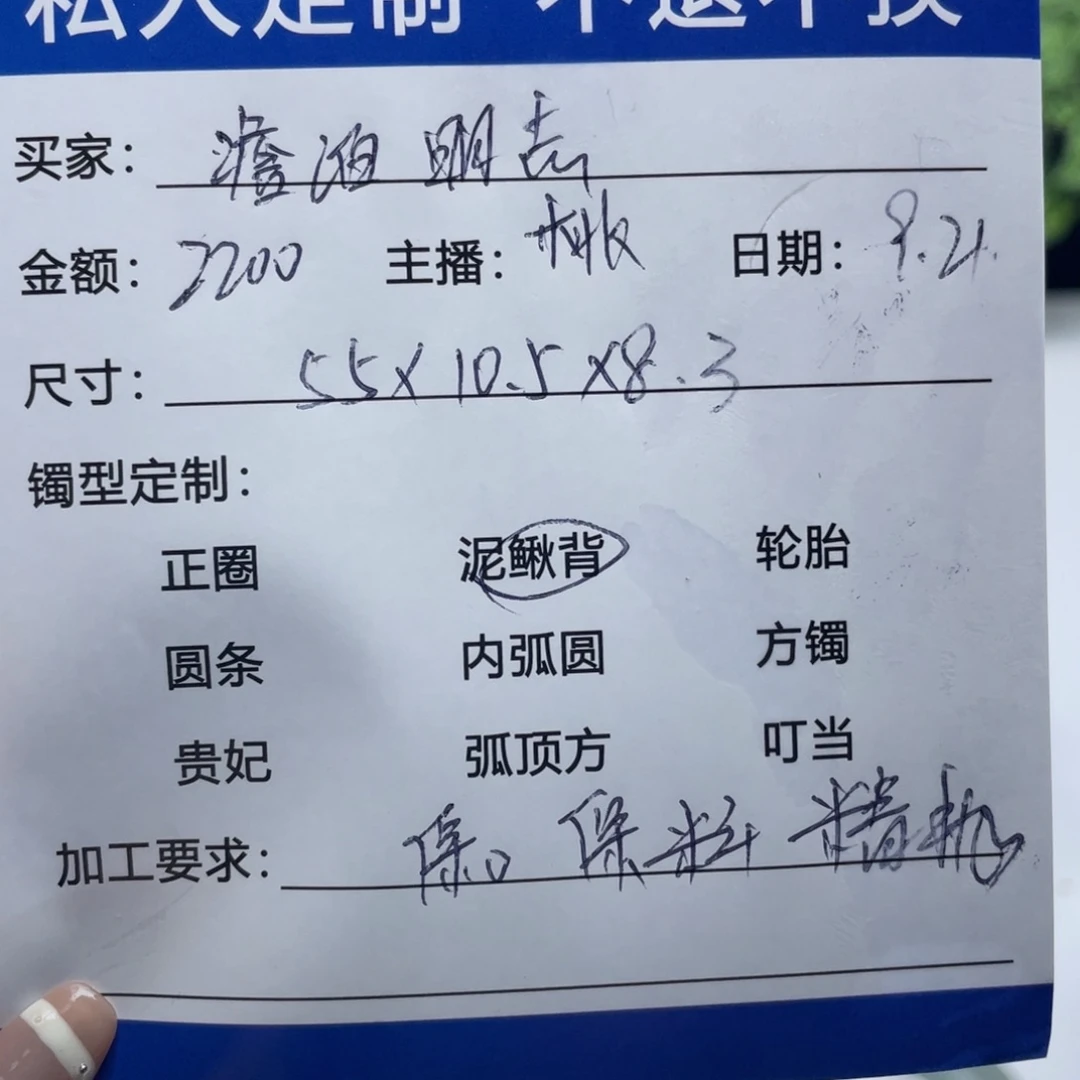 私人定制 不退不换
买家：澹泊明志
金额：2200 主播： 日期：9.21
尺寸：55×10.5×8.3
镯型定制：
正圈 泥鳅背 轮胎
圆条 内弧圆 方镯
贵妃 弧顶方 叮当
加工要求：保口 保料 精机